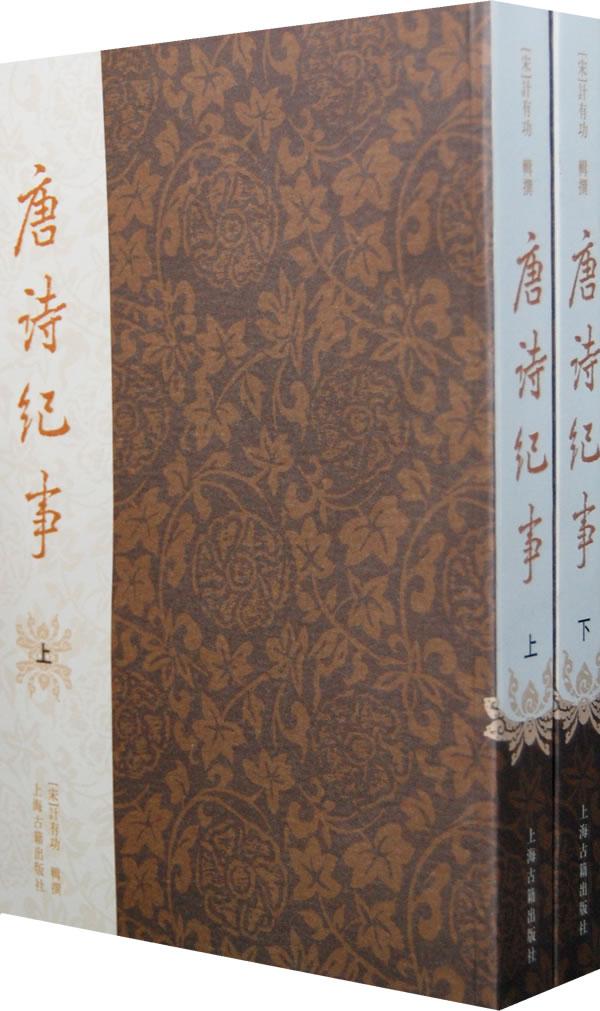 唐诗纪事
上
[宋]計有功 輯撰
上海古籍出版社
[宋]計有功 輯撰
唐诗纪事
上
上海古籍出版社
[宋]計有功 輯撰
唐诗纪事
下
上海古籍出版社